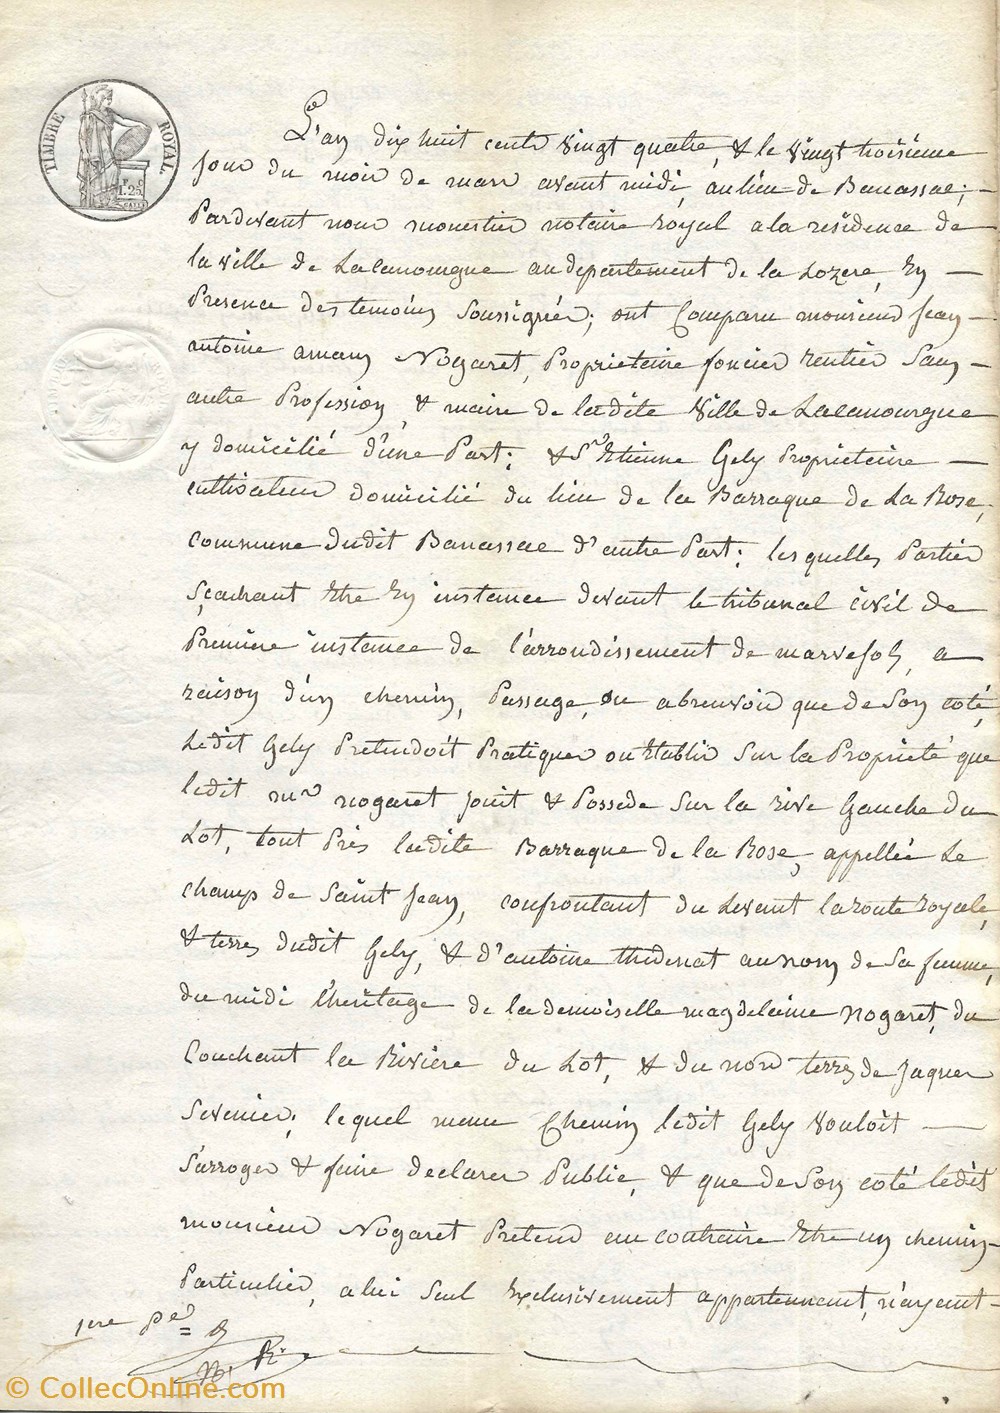 TIMBRE ROYAL
1.25
L'an dix huit cents vingt quatre, & le vingt troisième
jour du mois de mars avant midi, au lieu de Banassac; -
Pardevant nous monestier notaire royal a la residence de
la ville de Lacanourgue au departement de la Lozere, En -
Presence des temoins soussignés; ont Comparu monsieur Jean -
antoine amans Nogaret, Proprietaire foncier rentier Sans -
autre Profession, & maire de ladite Ville de Lacanourgue
y domicilié d'une Part; & Sr Etienne Gely Proprietaire -
cultivateur domicilié du lieu de la Barraque de La Rose,
commune dudit Banassac d'autre Part; lesquelles Parties
sçachant Etre En instance devant le tribunal civil de
Première instance de l'arrondissement de marvejols, a
raison d'un chemin, Passage, ou abreuvoir que de Son coté,
Ledit Gely Pretendoit Pratiquer ou Etablir sur la Proprieté que
ledit mr nogaret jouit & Possede sur la rive Gauche du
Lot, tout Près ladite Barraque de la Rose, appellée Le
champ de Saint Jean, confrontant du Levant la route royale,
& terres dudit Gely, & d'antoine thedenat au nom de sa femme,
du midi l'héritage de la demoiselle magdelaine Nogaret, du
Couchant la Rivière du Lot, & du nord terres de Jaques
Sevenier; lequel meme Chemin ledit Gely Vouloit -
S'arroger & faire declarer Public, & que de Son coté ledit
monsieur Nogaret Pretend au contraire Etre un chemin -
Particulier, a lui Seul Exclusivement appartennant, n'ayent -
1ere pe
© CollecOnline.com